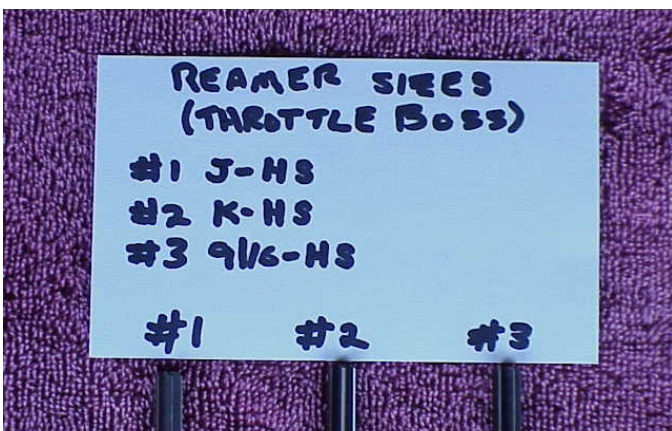 REAMER SIZES
(THROTTLE BOSS)
#1 J-HS
#2 K-HS
#3 9/16-HS
#1 #2 #3